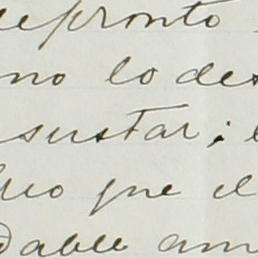 depronto
no lo des
sustar; e
luo que el
dable am